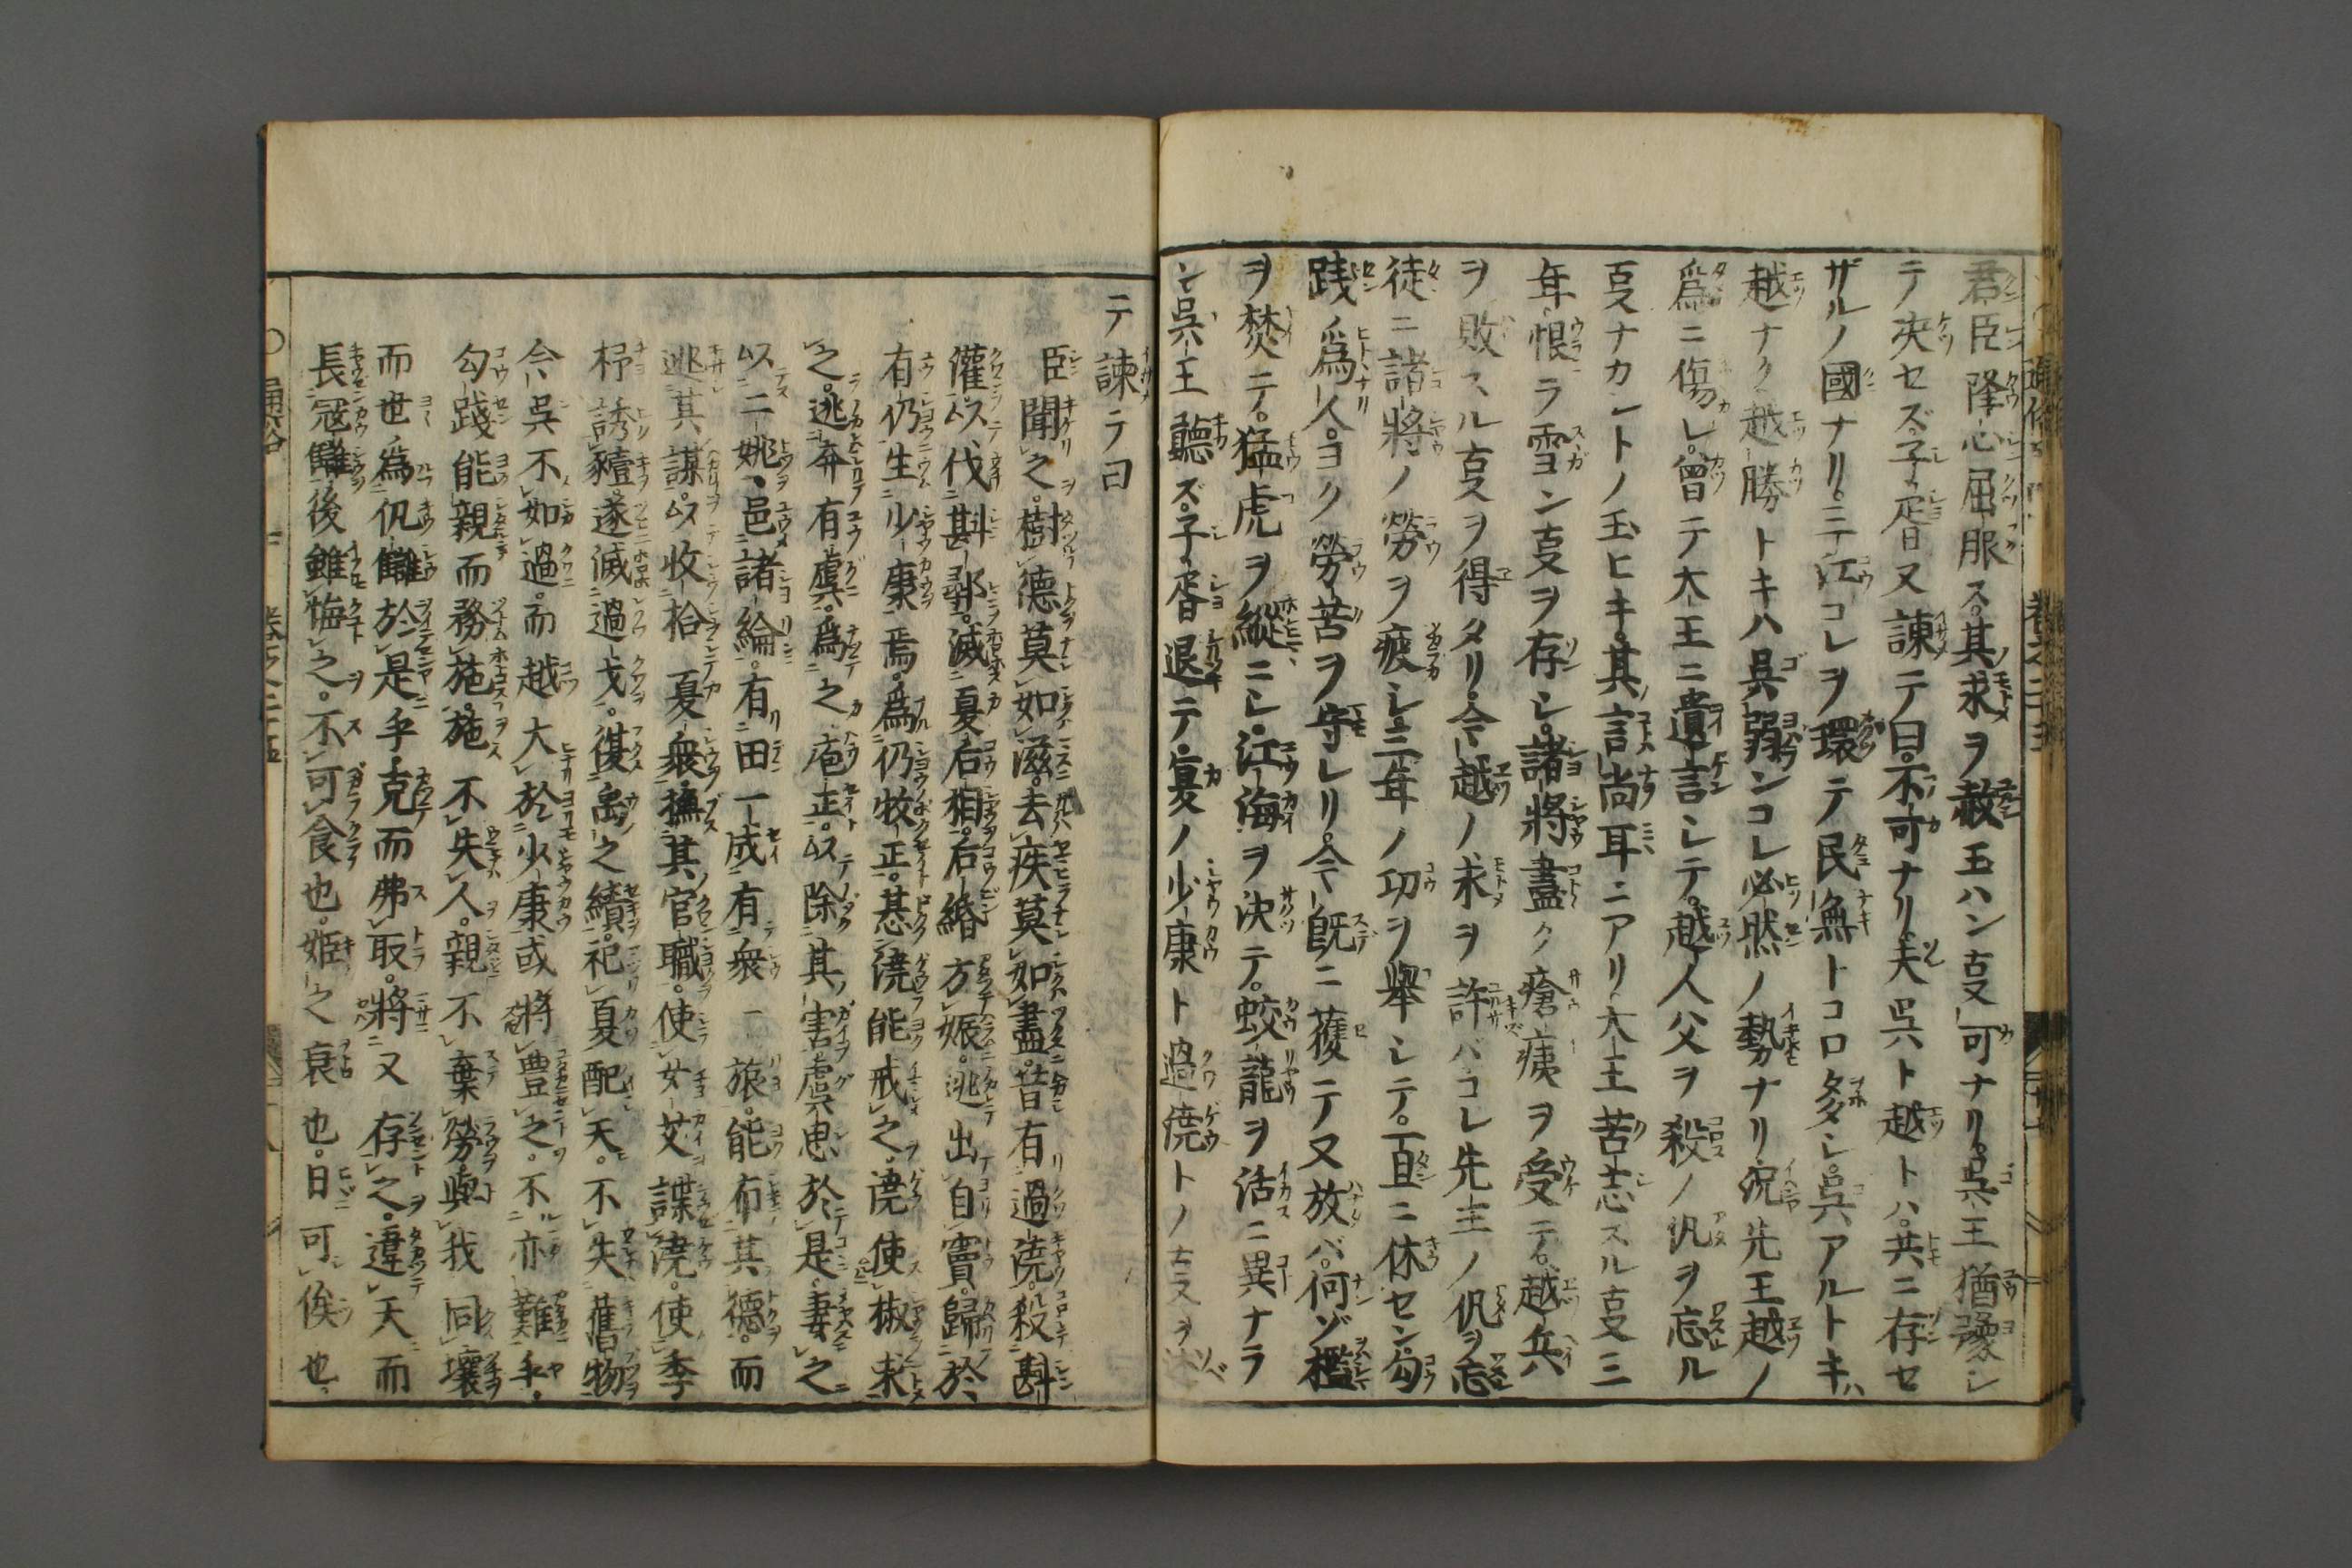 君臣降心屈服ス其求ヲ赦玉ハン亊可ナリ。呉王猶豫シ
テ決セズ子胥又諌テ曰。不可ナリ。夫呉ト越トハ。共ニ存セ
ザルノ國ナリ。三江コレヲ環テ民無トコロ多シ。呉アルトキハ
越ナク越勝トキハ呉弱ンコレ必然ノ勢ナリ況先王越ノ
爲ニ傷レ曾テ大王ニ遺言シテ。越人父ヲ殺ノ仇ヲ忘ル
亊ナカレトノ玉ヒキ。其言尚耳ニアリ大王苦志スル亊三
年恨ラ雪ン亊ヲ存シ。諸將盡ク瘡痍ヲ受テ。越兵
ヲ敗スル亊ヲ得タリ。今越ノ求ヲ許バコレ先主ノ仇ヲ忘
徒ニ諸將ノ勞ヲ疲シ三年ノ功ヲ擧シテ。一旦ニ休セン。勾
践ノ爲人。ヨク勞苦ヲ守レリ。今既ニ獲テ又放バ。何ゾ檻
ヲ焚テ。猛虎ヲ縱ニシ。江海ヲ決テ。蛟龍ヲ活ニ異ナラ
ン呉王聽ズ。子胥退テ。夏ノ少康ト過澆トノ亊ヲ
テ諌テ曰
臣聞之。樹德莫如滋。去疾莫如盡。昔有過澆。殺斟
灌以伐斟鄩。滅夏后相。后緡方娠。逃出自竇。歸於
有仍生少康焉。爲仍牧正。惎澆能戒之。澆使椒求
之。逃奔有虞。爲之庖正。以除其害虞思於是妻之
以二姚、邑諸綸。有田一成有衆一旅。能布其德。而
兆其謀。以收拾夏衆撫其官職。使女艾諜澆。使季
杼誘豷遂滅過戈。復禹之績。祀夏配天。不失舊物
今呉不如過。而越大於少康或將豊之。不亦難乎。
勾踐能親而務施。施不失人。親不棄勞與我同壤
而世爲仇讎於是乎。克而弗取。將又存之。違天而
長寇讎。後雖悔之。不可食也。姫之衰也。日可俟也